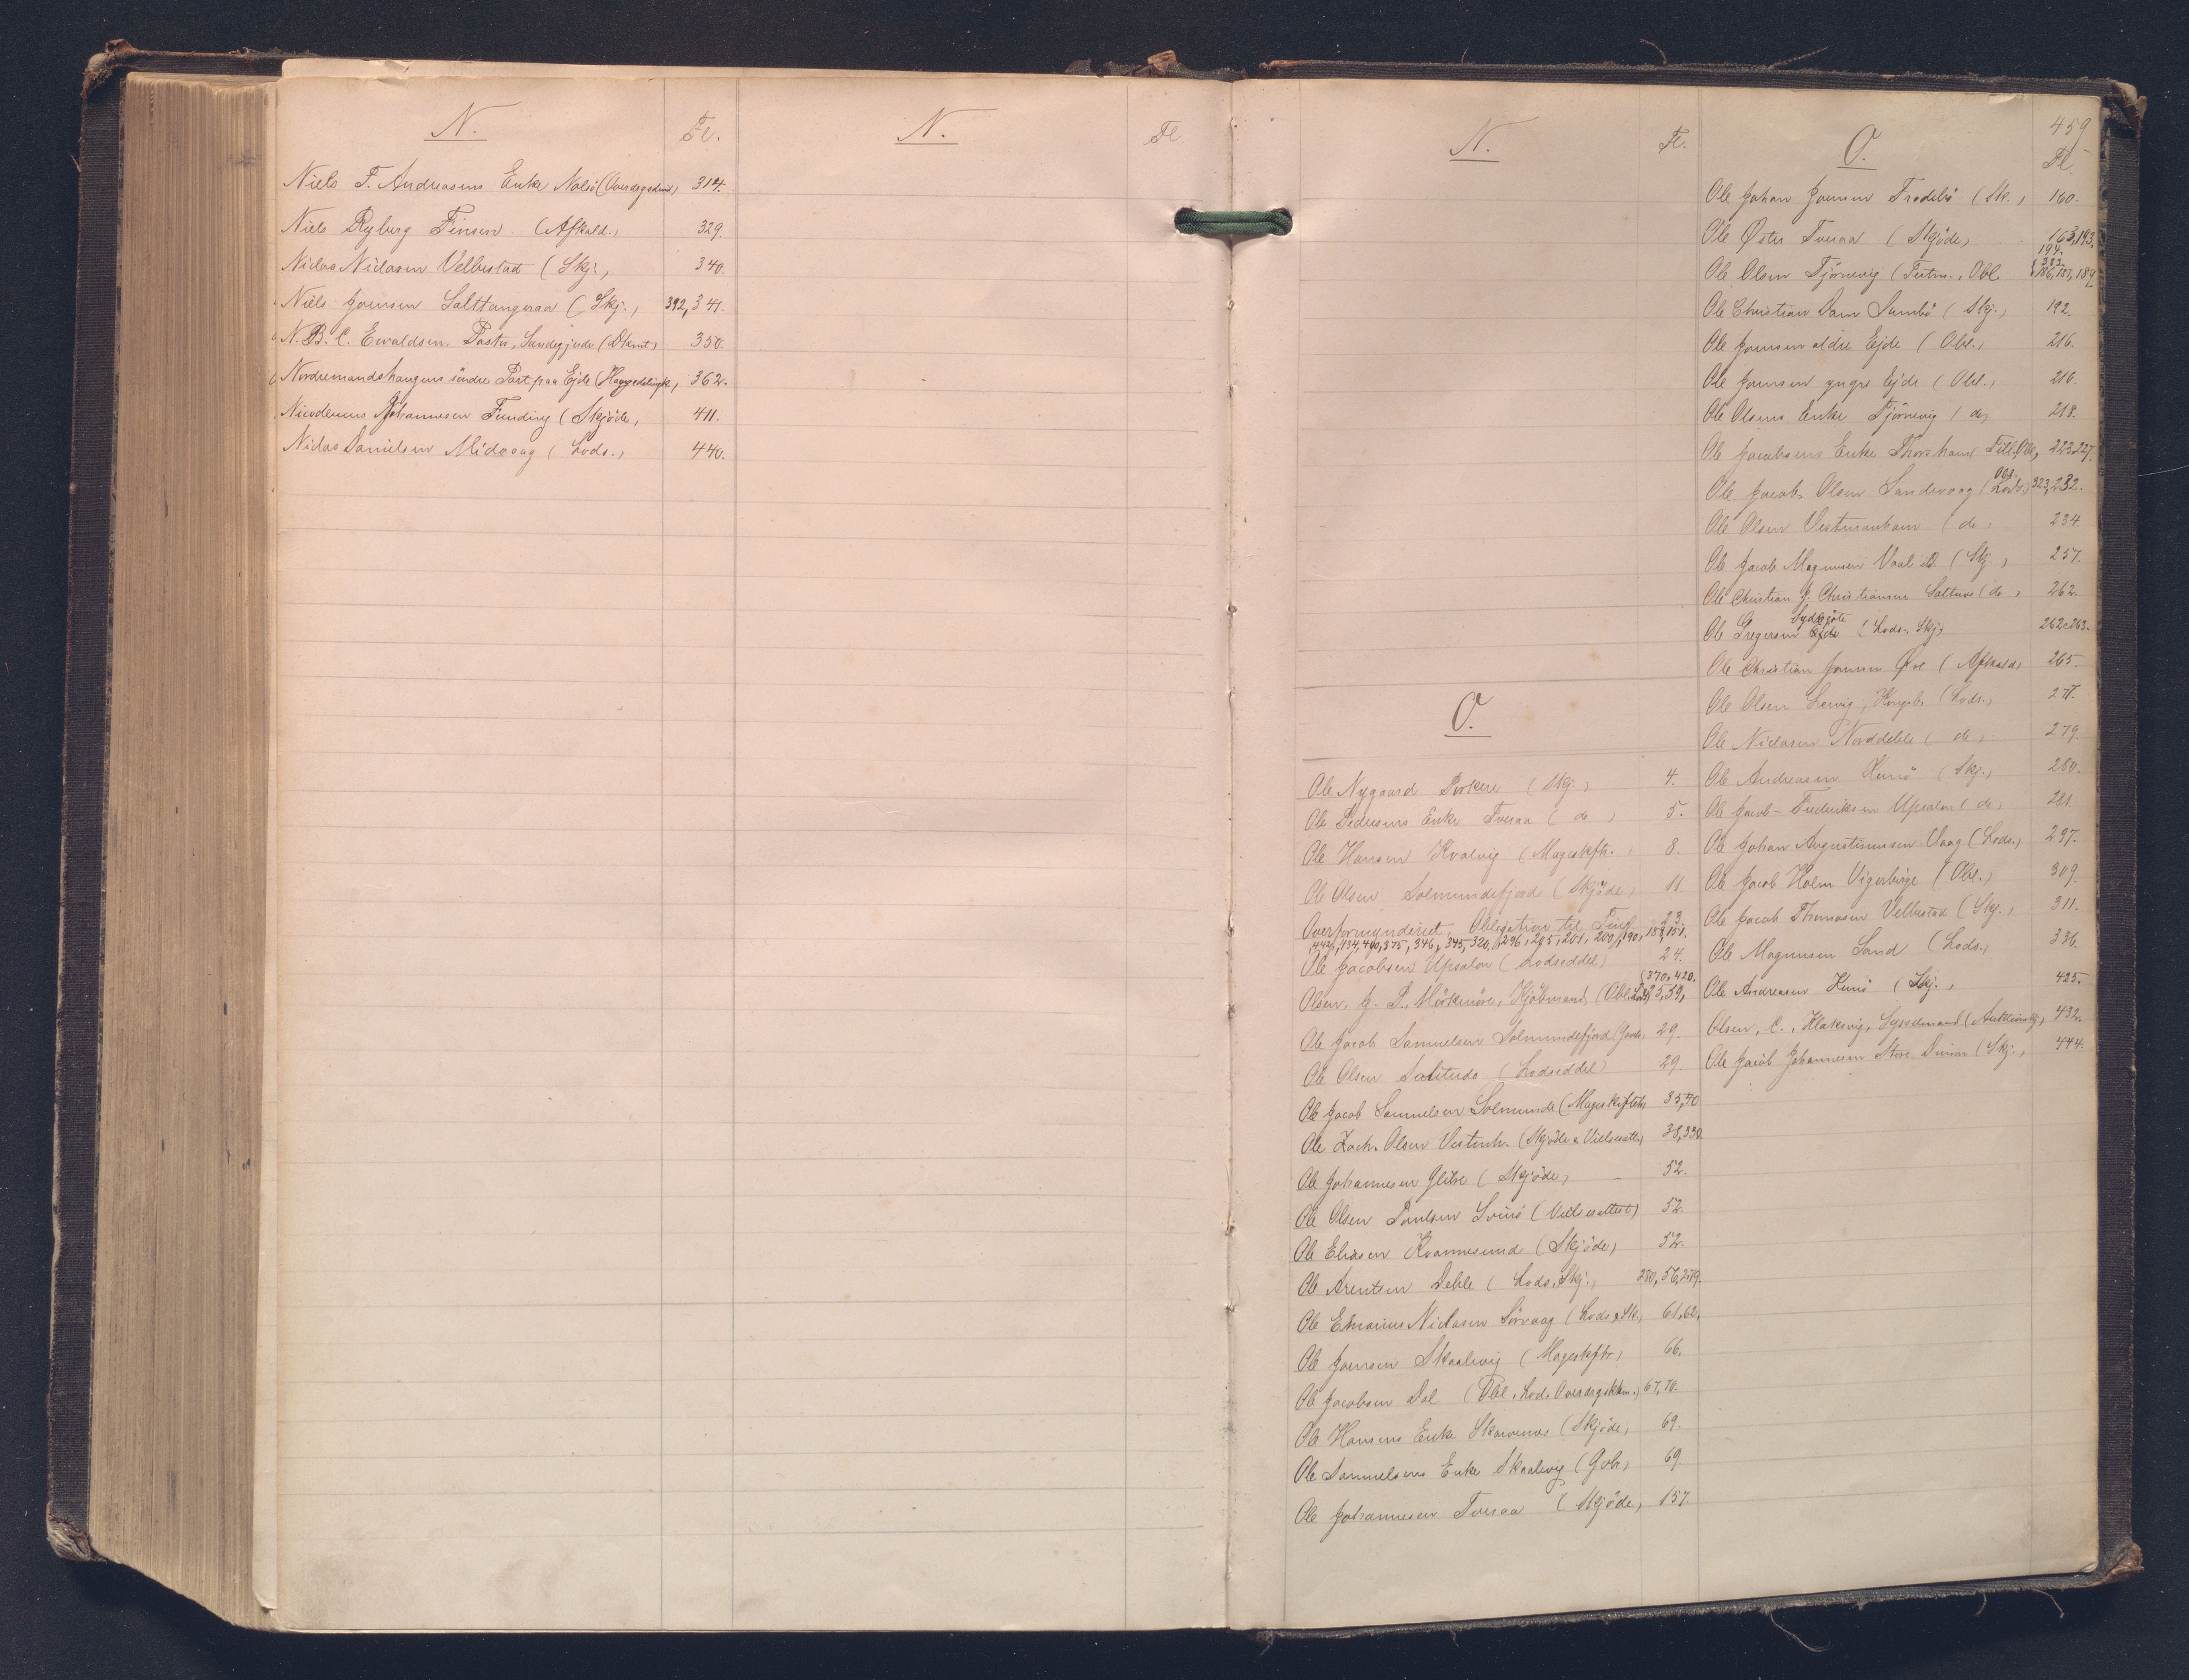 N.
Fl.
Niels F. Andreasens Enke Nolsö (Overdragelsesd.) 314.
Niels Ryberg Finsen (Afkald.) 329.
Niclas Niclasen Velbestad (Skj.) 340.
Niels Joensen Salttangeraa (Skj.) 392, 341.
N. B. C. Evaldsen, Pastor, Sandegjerde 350.
Nordremandshaugens söndre Part paa Ejde 362.
Nicodemus Johannesen Funding (Skjöde) 411.
Niclas Danielsen Midvaag (Lods.) 440.
N.
Fl.
N.
Fl.
O.
Ole Nygaard Porkere (Skj.) 4.
Ole Pedersens Enke Tveraa (do) 5.
Ole Hansen Kvalvig (Mageskftr.) 8.
Ole Olsen Solmundefjord (Skjöde) 11.
Overformynderiet, Obligation til 23.
442, 434, 400, 375, 346, 345, 320, 296, 205, 201, 200, 190, 183, 151.
Ole Jacobsen Upsalon (Lodseddel) 24.
(370, 420.
Olsen, J. P., Mörkenöre, Kjöbmand (Obl. Lods) 25, 39,
Ole Jacob Samuelsen Solmundefjord 29.
Ole Olsen Saltnes (Lodseddel) 29.
Ole Jacob Samuelsen Solmunde (Mageskiftebr) 35, 40
Ole Zach. Olsen Vestmh. (Skjöde & Vielsesatt.) 38, 330.
Ole Johannesen Glibre (Skjöde) 52.
Ole Olsen Poulsen Svinö (Vielsesattest) 52.
Ole Eliasen Kvannesund (Skjöde) 52.
Ole Arentsen Deble (Lods, Skj.) 280, 56, 279.
Ole Emarius Niclasen Sörvaag (Lods, Sk.) 61, 62,
Ole Joensen Skaalevig (Mageskftr) 66.
Ole Jacobsen Dal (Obl., Lod., Overdrgsdkm.) 67, 70.
Ole Hansens Enke Skarvenes (Skjöde) 69.
Ole Samuelsens Enke Skaalevig (Gvbr) 69.
Ole Johannesen Tveraa (Skjöde) 157.
O.
459
Fl.
Ole Johan Joensen Frodebö (Sk.) 160.
Ole Öster Tveraa (Skjöde) 163, 193,
194.
Ole Olsen Tjörnevig (Testm., Obl. 383. 186, 187, 189
Ole Christian Dam Sumbö (Skj.) 192.
Ole Joensen ældre Ejde (Obl.) 216.
Ole Joensen yngre Ejde (Obl.) 216.
Ole Olsens Enke Tjörnevig (do) 218.
Ole Jacobsens Enke Thorshavn 223, 227.
Ole Jacob Olsen Sandevaag (Obl. Lods.) 323, 232.
Ole Olsen Vestmanhavn (do) 234.
Ole Jacob Magnusen Vaal (Skj.) 257.
Ole Christian J. Christiansen Saltnes (do) 262.
Ole Gregersen Sydregöte (Lods., Skj.) 262 & 263.
Ole Christian Joensen Öre (Afkald) 265.
Ole Olsen Lervig, Kongsb. (Lods.) 277.
Ole Niclasen Norddeble (do) 279.
Ole Andreasen Kunö (Skj.) 280.
Ole Jacob Frederiksen Upsalon (do) 281.
Ole Johan Augustinussen Vaag (Lods.) 297.
Ole Jacob Holm Vigerbirge (Obl.) 309.
Ole Jacob Thomasen Velbestad (Skj.) 311.
Ole Magnusen Sand (Lods.) 336.
Ole Andreasen Kunö (Skj.) 425.
Olsen, C., Klaksvig, Sysselmand (Auktionskj.) 432.
Ole Jacob Johannesen Store Dimon (Skj.) 444.